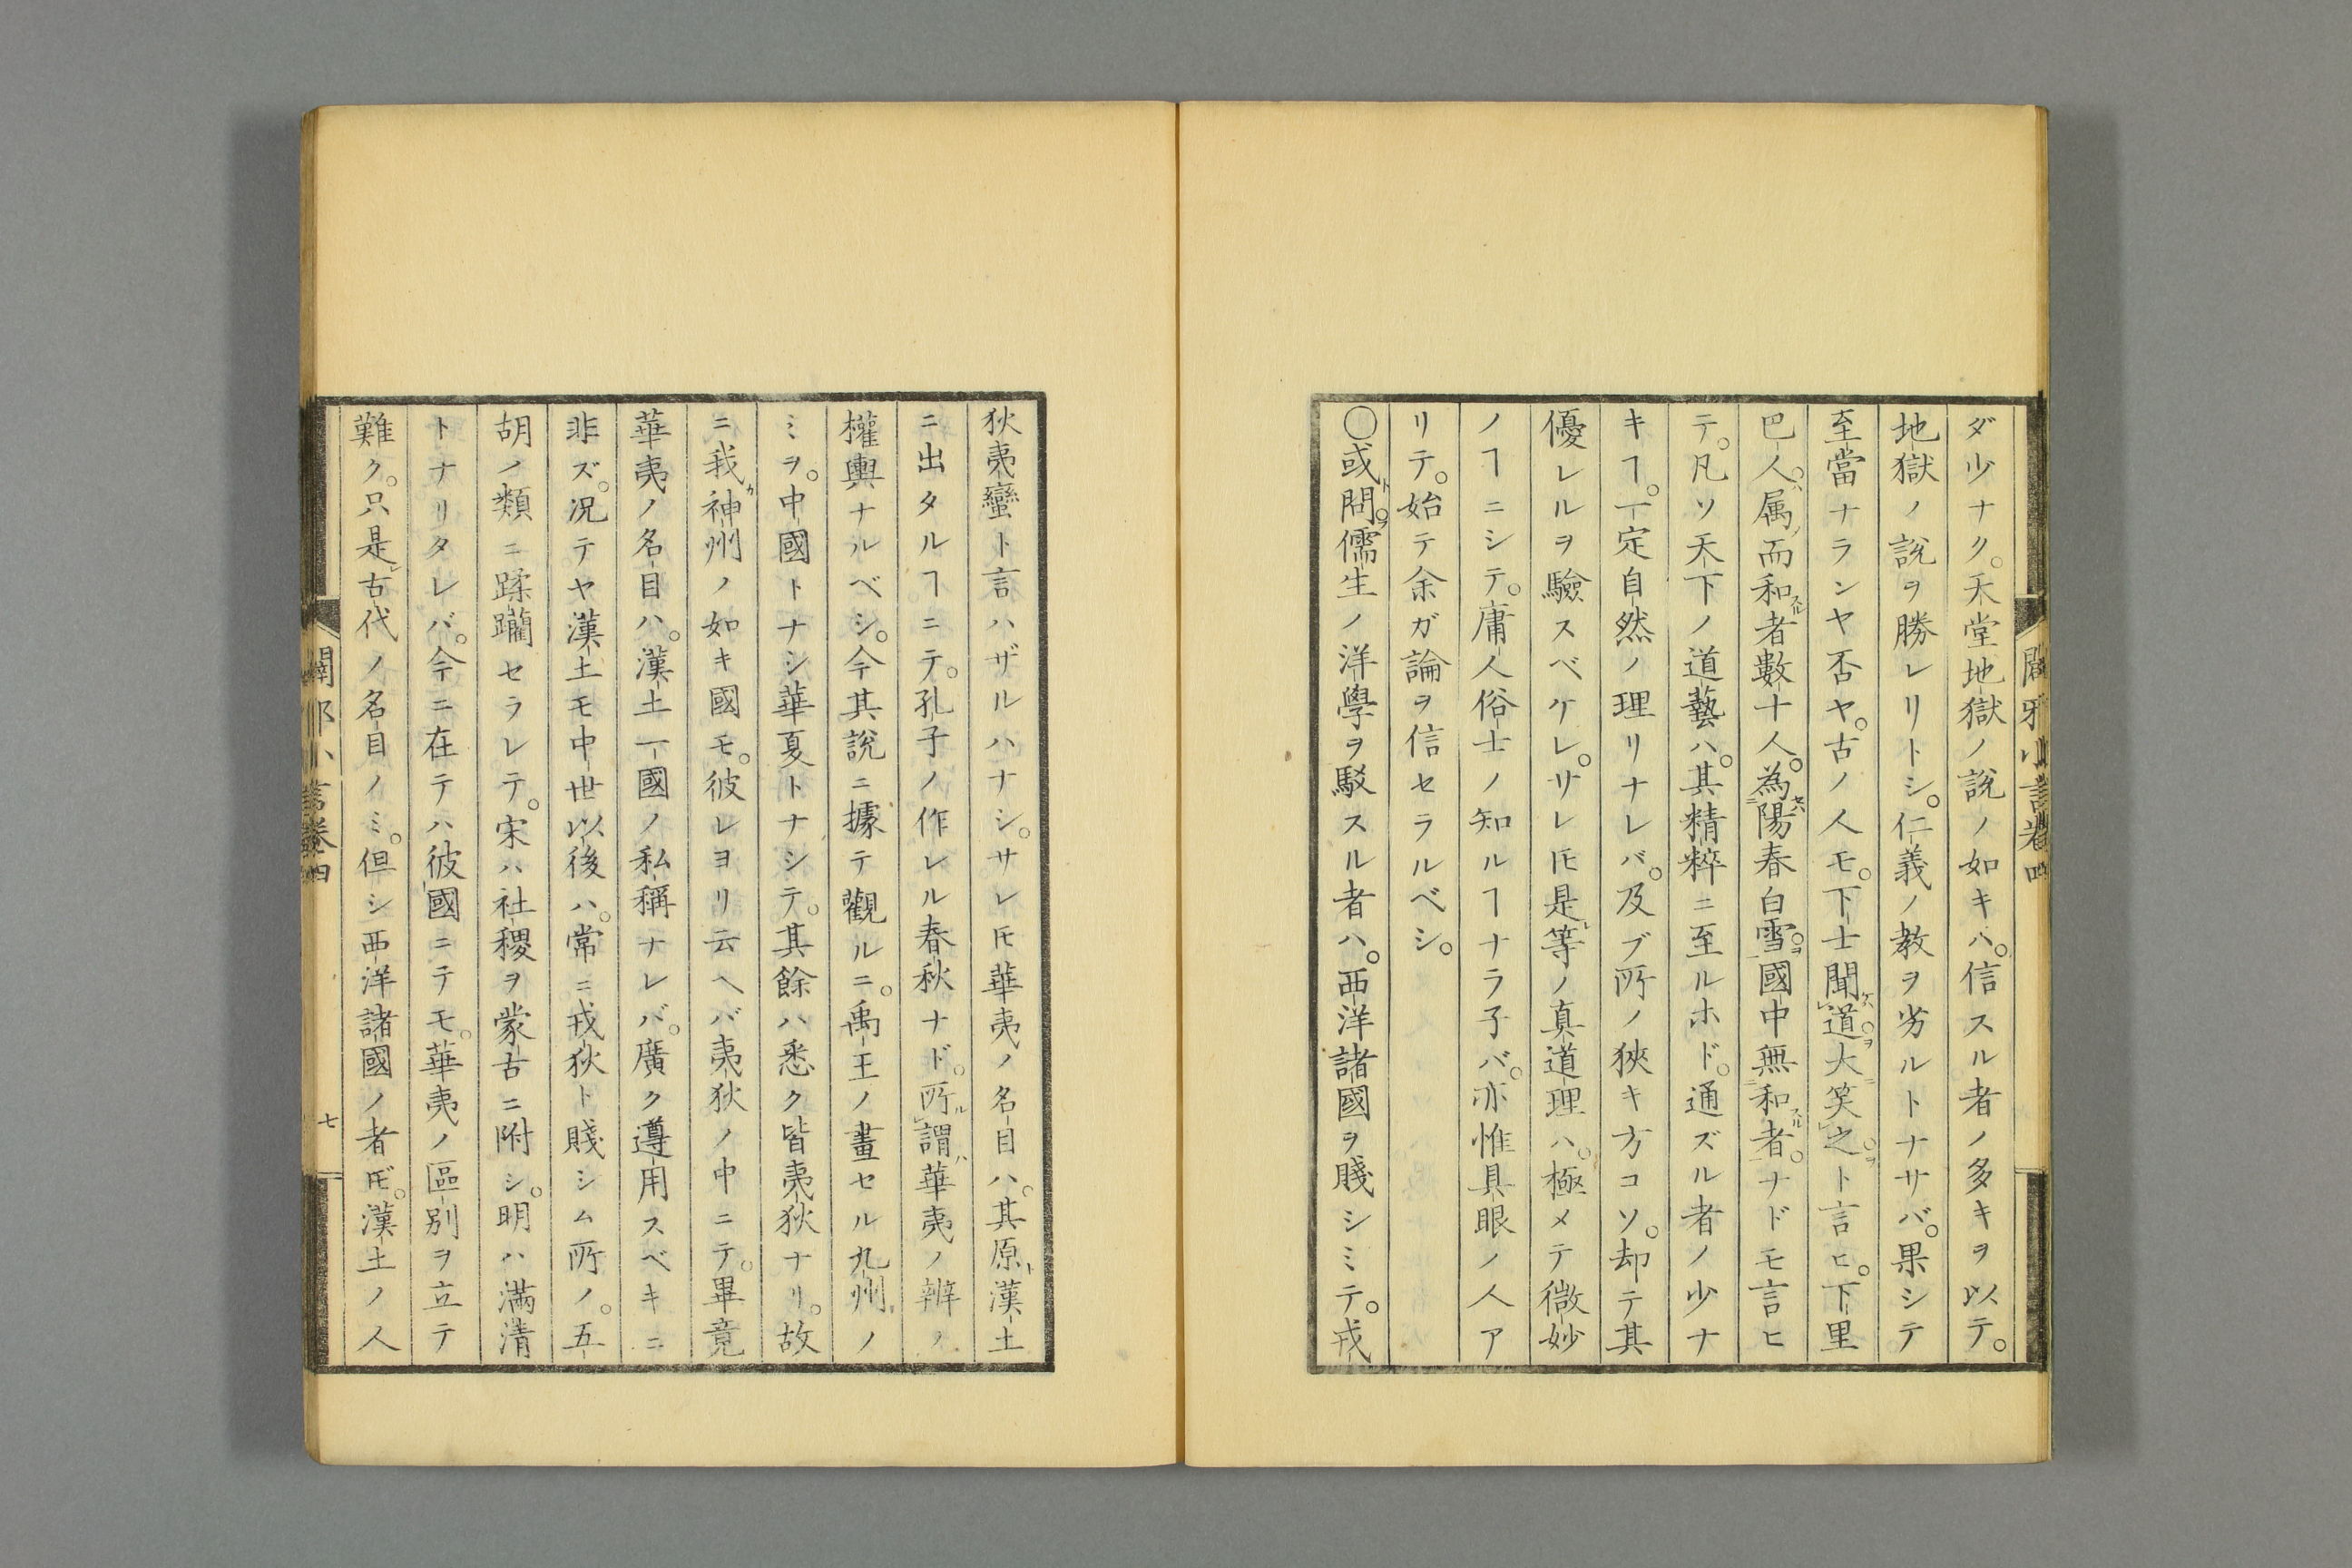 ダ少ナク。天堂地獄ノ說ノ如キハ。信スル者ノ多キヲ以テ。
地獄ノ說ヲ勝レリトシ。仁義ノ教ヲ劣ルトナサバ。果シテ
至當ナランヤ否ヤ。古ノ人モ。下士聞道大笑之ト言ヒ。下里
巴人。属而和者數十人。為陽春白雪。國中無和者。ナドモ言ヒ
テ。凡ソ天下ノ道藝ハ。其精粹ニ至ルホド。通ズル者ノ少ナ
キヿ。一定自然ノ理リナレバ。及ブ所ノ狹キ方コソ。却テ其
優レルヲ驗スベケレ。サレ𪜈是等ノ真道理ハ。極メテ微妙
ノヿニシテ。庸人俗士ノ知ルヿナラ子バ。亦惟具眼ノ人ア
リテ。始テ余ガ論ヲ信セラルベシ。
〇或問。儒生ノ洋學ヲ駁スル者ハ。西洋諸國ヲ賤シミテ。戎
狄夷蠻ト言ハザルハナシ。サレ𪜈華夷ノ名目ハ。其原漢土
ニ出タルヿニテ。孔子ノ作レル春秋ナド。所謂華夷ノ辨ノ
權輿ナルベシ。今其說ニ據テ觀ルニ。禹王ノ畫セル九州ノ
ミヲ。中國トナシ華夏トナシテ。其餘ハ悉ク皆夷狄ナリ。故
ニ我神州ノ如キ國モ。彼レヨリ云ヘバ夷狄ノ中ニテ。畢竟
華夷ノ名目ハ。漢土一國ノ私稱ナレバ。廣ク遵用スベキニ
非ズ。況テヤ漢土モ中世以後ハ。常ニ戎狄ト賤シム所ノ。五
胡ノ類ニ蹂躪セラレテ。宋ハ社稷ヲ蒙古ニ附シ。明ハ滿清
トナリタレバ。今ニ在テハ彼國ニテモ。華夷ノ區別ヲ立テ
難ク。只是古代ノ名目ノミ。但シ西洋諸國ノ者𪜈。漢土ノ人
闢邪小言卷四
七